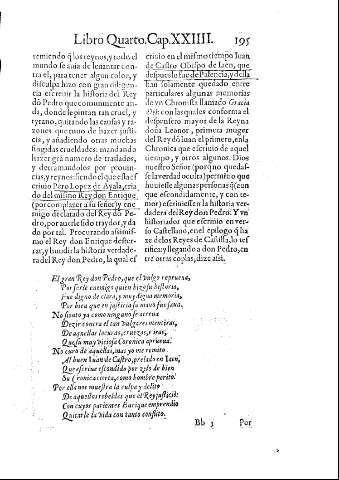 Libro Quarto. Cap. XXIIII. 195
remiendo q̃ los reynos, y todo el
mundo se auia de leuantar con-
tra el, para tener algun color, y
disculpa hizo con gran diligen-
cia escreuir la historia del Rey
dõ Pedro que comunmente an-
da, donde le pintan tan cruel, y
tyrano, quitando las causas y ra-
zones que tuuo de hazer justi-
cia, y añadiendo otras muchas
fingidas crueldades: mandando
hazer grã numero de traslados,
y derramandolos por prouin-
cias, y reynos: siendo el que esto es-
criuio Pero Lopez de Ayala, cria
do del mismo Rey don Enrique,
(por complazer a su señor) y ene
migo declarado del Rey dõ Pe-
dro, por auerle sido traydor, y da
do por tal. Procurando assimis-
mo el Rey don Enrique deste-
rrar, y hundir la historia verdade-
ra del Rey don Pedro, la qual es
criuio en el mismo tiempo Iuan
de Castro Obispo de Iaen, que
despues lo fue de Palencia, y della
tan solamente quedado entre
particulares algunas memorias
de vn Chronista llamado Gracia
Dei: con las quales conforma el
despensero mayor de la Reyna
doña Leonor, primera muger
del Rey dõ Iuan el primero, en la
Chronica que escriuio de aquel
tiempo, y otros algunos. Dios
nuestro Señor (porque no queda-
sse la verdad oculta) permitio que
huuiesse algunas personas q̃ (aun
que escondidamente, y con te-
mor) escriuiessen la historia ver-
dadera del Rey don Pedro: Y vn
historiador que escriuio en ver-
so Castellano, en el epilogo q̃ ha
ze de los Reyes de Castilla, lo tes-
tifica: y llegando a don Pedro, en
tre otras coplas, dize assi.
El gran Rey don Pedro, que el vulgo reprueua,
Por serle enemigo quien hizo su historia,
Fue digno de clara, y muy digna memoria,
Por bien que en justicia su mano fue seua.
No siento yo como ninguno se atreua
Dezir contra el tan vulgares mentiras,
De aquellas locuras, cruezas, e iras,
Que su muy viciosa Coronica aprueua.
No curo de aquellas, mas yo me remito
Al buen Iuan de Castro, prelado en Iaen,
Que escriue escondido por zelo de bien
Su Cronica cierta, como hombre perito.
Por ella nos muestra la culpa y delito
De aquellos rebeldes que el Rey justiciò:
Con cuyos parientes Enrique emprendio
Quitarle la vida con tanto conflito.
Bb 3 Por